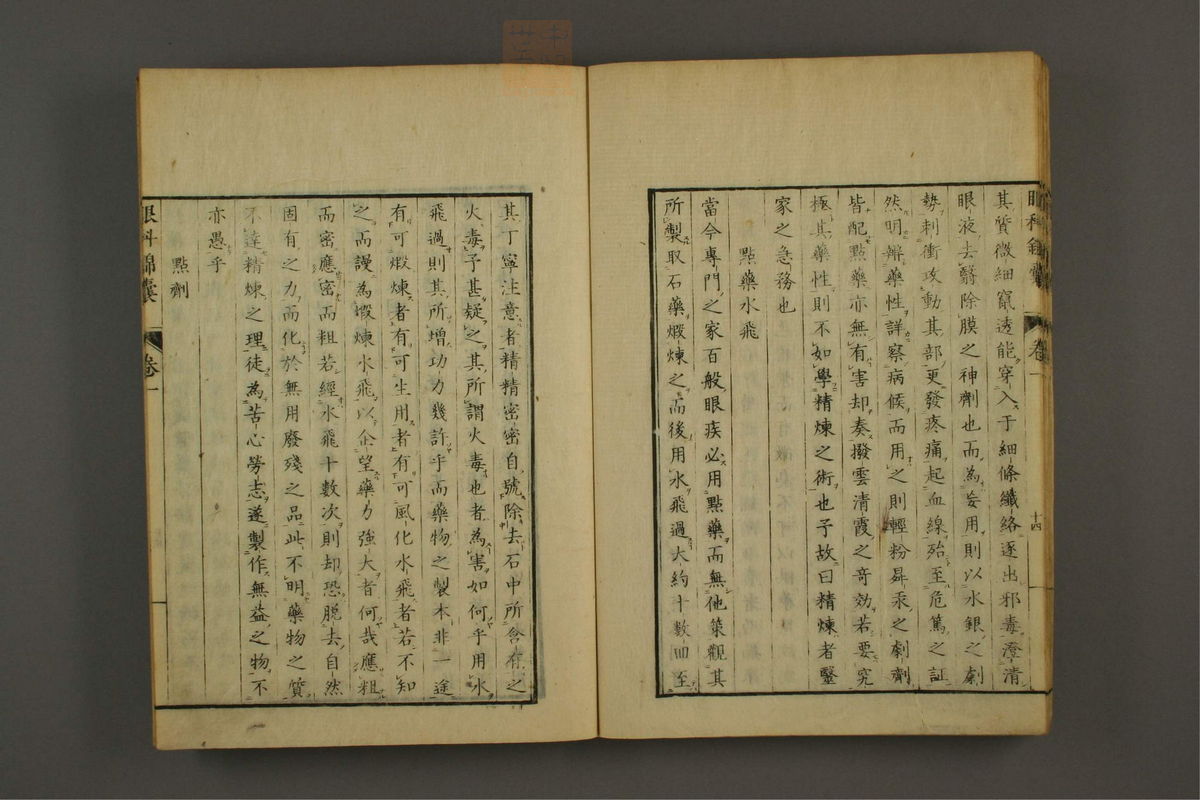 眼科錦囊 卷一 十四
其質微細竄透能穿入于細條纖絡逐出邪毒澄清
眼液去翳除膜之神劑也而為妄用則以水銀之劇
勢刺衝攻動其部更發疼痛起血線殆至危篤之証
然明辨藥性詳察病候而用之則輕粉昇汞之劇劑
皆配點藥亦無有害却奏撥雲清霞之奇効若要究
極其藥性則不如學精煉之術也予故曰精煉者醫
家之急務也
點藥水飛
當今專門之家百般眼疾必用點藥而無他策觀其
所製取石藥煅煉之而後用水飛過大約十數回至
其丁寧注意者精精密密自號除去石中所含有之
火毒予甚疑之其所謂火毒也者為害如何乎用水
飛過則其所增功力幾許乎而藥物之製本非一途
有可煅煉者有可生用者有可風化水飛者若不知
之而謾為煅煉水飛以企望藥力強大者何哉應粗
而密應密而粗若經水飛十數次則却恐脫去自然
固有之力而化於無用廢殘之品此不明藥物之質
不達精煉之理徒為苦心勞志遂製作無益之物不
亦愚乎
點劑
眼科錦囊 卷一